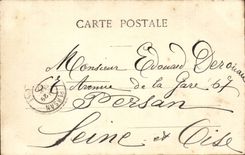 CARTE POSTALE
Monsieur Edouard
Avenue de la Gare 67
Persan
Seine et Oise
PERSAN